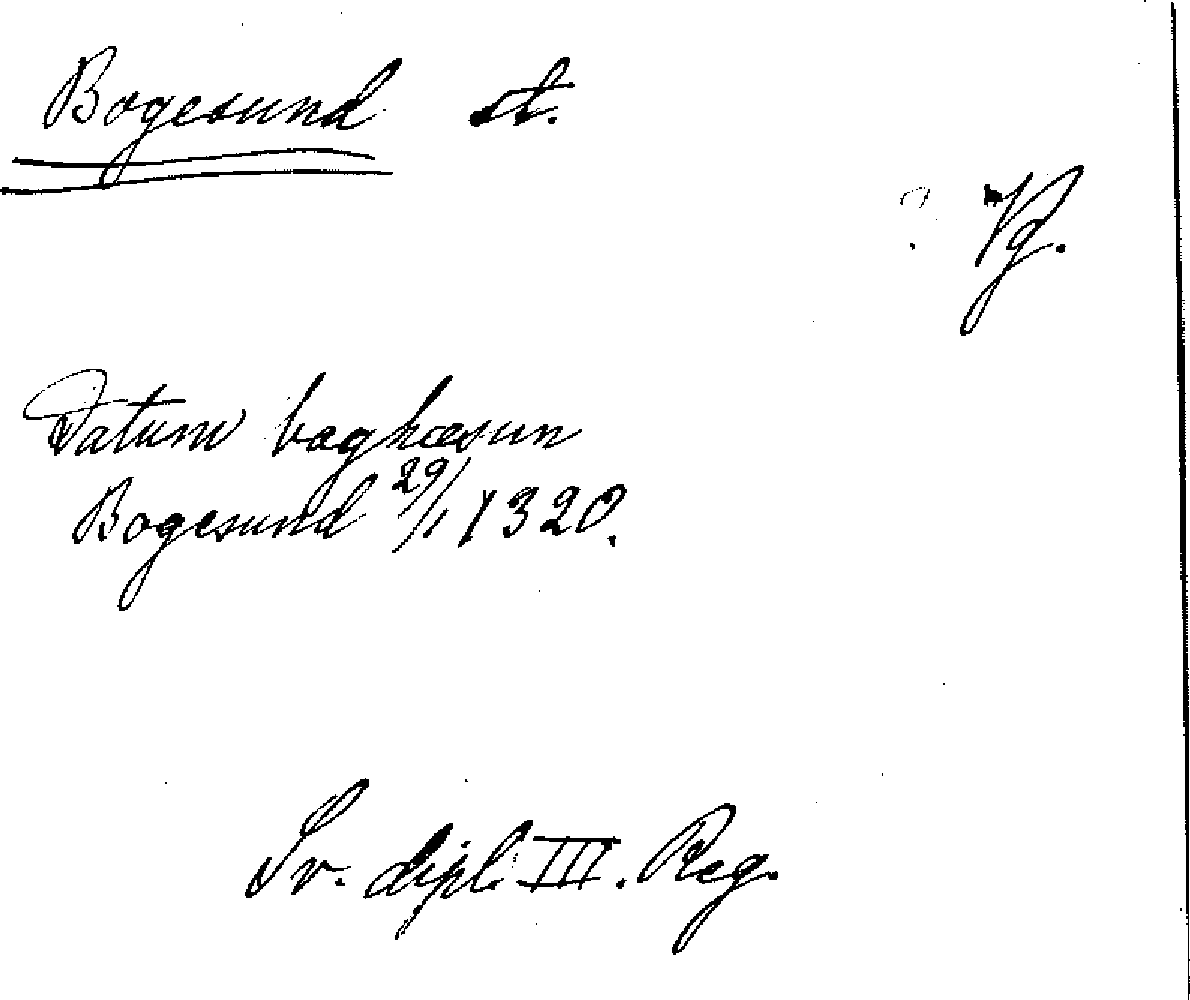 Bogesund st.
? Vg.
Datum baghæsun
Bogesund 29/1 1320.
Sv. dipl. III. Reg.